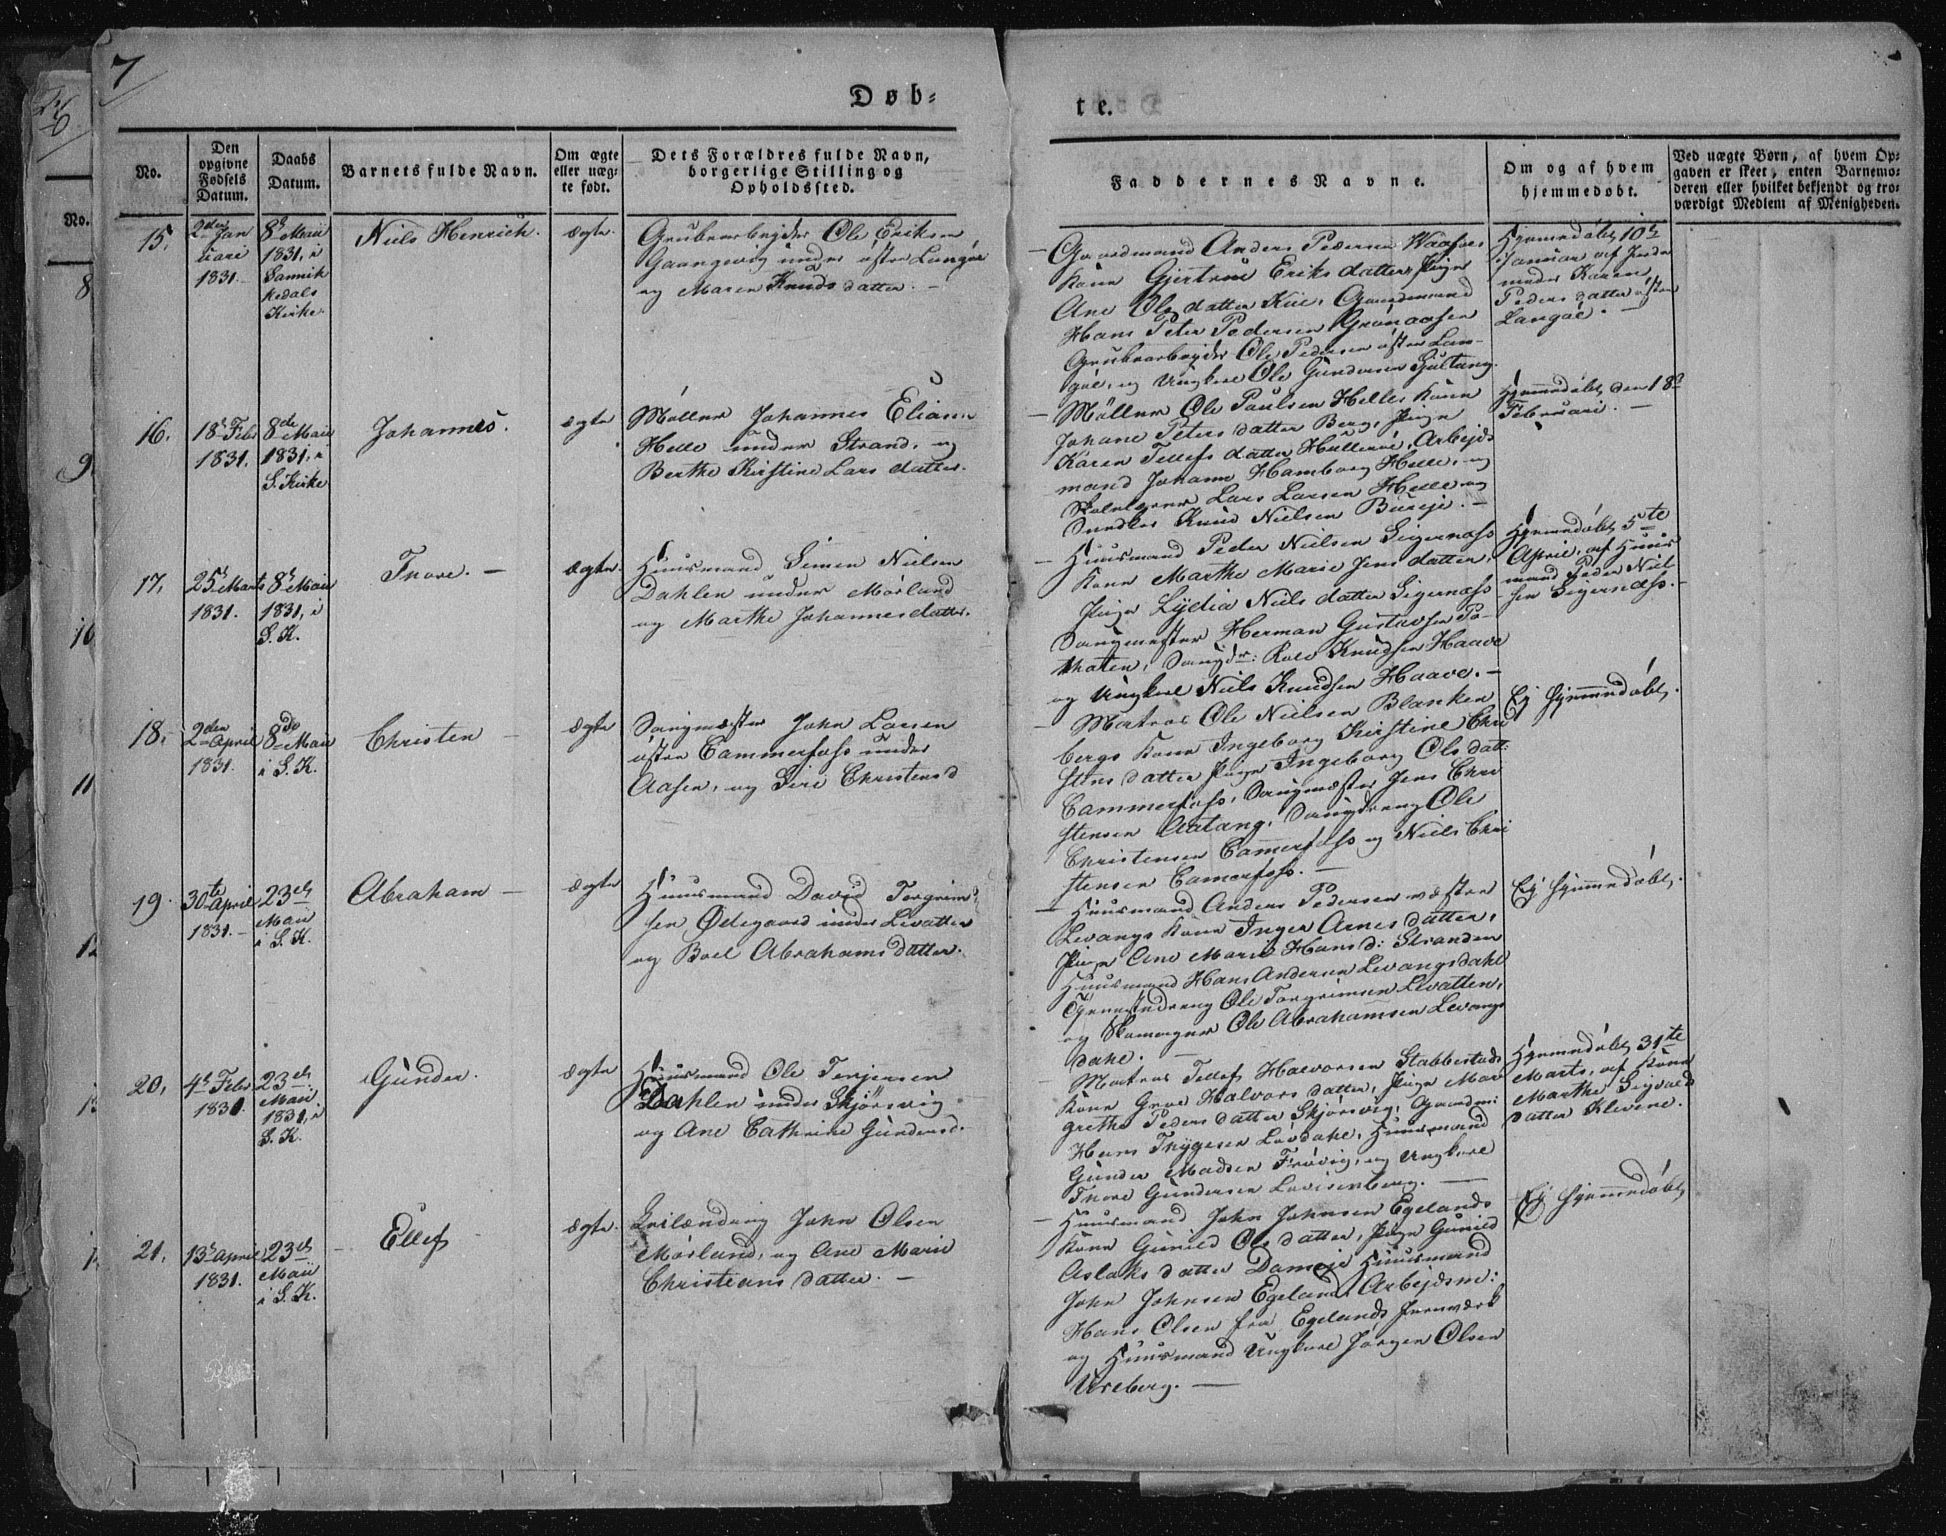 7
Døb-
te.
No.
Den
opgivne
Fødsels
Datum.
Daabs
Datum.
Barnets fulde Navn.
Om ægte
eller uæg-
te født.
Dets Forældres fulde Navn,
borgerlige Stilling og
Opholdssted.
Faddernes Navne.
Om og af hvem
hjemmedøbt.
Ved uægte Børn, af hvem Op-
gaven er skeet, enten Barnemo-
deren eller hvilket bekjendt og tro-
værdigt Medlem af Menigheden.
No.
8
9.
10
11
12
15.
2den Jan
uari
1831.
8de Maii
1831, i
Sannik
kedals
Kirke.
Niels Henrich.
ægte
Grubearbeyder Ole Eriksen
under østre Langøe
og Maren Knudsdatter. —
Gaardmand Anders Pedersen
Kone Gjertrue Eriksdatter, Pige
Ane Olsdatter Kiil, Gaardmand
Hans Peter Pedersen Grønaasen
Grubearbejder Ole Pedersen østre Lan-
gøe, og Ungkarl Ole Gundersen
Hjemmedøbt 10de
Januar af Jorde
moder Karen
Pedersdatter østre
Langøe. —
16.
18de Febr
1831.
8de Maii
1831, i
S. Kirke
Johannes.
ægte
Møller Johannes Elias
Helle under Strand, og
Berthe Kirstine Larsdatter.
Møller Ole Paulsen Helles Kone
Johane Petersdatter Berg, Pige
Karen Tellefsdatter Hullerøe, Arbejds
mand Johann Hamborg Helle, og
Skolelærer Lars Larsen Helle og
Knud Nielsen Burøje. —
Hjemmedøbt, den 18de
Februari. —
17.
25de Marts
1831.
8de Maii
1831, i
S. K.
Thore. —
ægte.
Huusmand Simen Nielsen
Dahlen under Mørland
og Marthe Johannesdatter.
Huusmand Peder Nielsen Sigernæss
Kone Marthe Marie Jensdatter,
Pige Lydia Nielsdatter Sigernæss
Saugmester Herman Gustavsen Po-
thaten, Saugdr: Roev Knudsen Haave
og Ungkarl Niels Knudsen Haave. —
Hjemmedøbt 5te
April, af Huus
mand Peder Niel-
sen Sigernæss. —
18.
2den April
1831.
8de Maii
i S. K.
Christen —
ægte
Saugmester John Larsen
østre Cammerfoss under
Aasen, og Siri Christensd
Matros Ole Nielsen Blanken
bergs Kone Ingeborg Kirstine Chri
stensdatter Pige Ingeborg Olsdatt:
Cammerfoss, Saugmester Jens Chri
stensen Aatang, Saugdreng Ole
Christensen Camerfoss og Niels Chri
stensen Camerfoss. —
Ej hjemmedøbt.
19.
30te April
1831. —
23de
Maii
i S. K.
Abraham —
ægte
Huusmand David Torgrim-
sen Ødegaard under Levatten
og Boel Abrahamsdatter.
Huusmand Anders Pedersen væstre
Levangs Kone Inger Arnesdatter,
Pige Ane Marie Hansd: Stranden
Huusmand Hans Andersen Levangsdahl
Tjenestedreng Ole Torgrimsen Levatten,
og Skomager Ole Abrahamsen Levangs
dahl. —
Ej hjemmedøbt.
20.
4de Febr
1831.
23de
Maii
1831, i
S. K.
Gunder.
ægte
Huusmand Ole Terjesen
Dahlen under Skjørsvig
og Ane Cathrine Gundersd.
Matros Tellef Halvorsen Stabbestads
Kone Groe Halvorsdatter, Pige Mar
grethe Pedersdatter Skjørsvig, Gaardm:
Hans Thygesen Løvdahl, Huusmand
Gunder Madsen Frøvig, og Ungkarl
Thore Gundersen Lovisenberg. —
Hjemmedøbt 31te
Marts, af Kone
Marthe Sigvalds
datter Klevene.
21.
13de April
1831.
23de
Maii
i S. K.
Ellef
ægte.
Leilænding John Olsen
Mørland, og Ane Marie
Christiansdatter. —
Huusmand John Johnsen Egelands
Kone Gunild Olsdatter, Pige Gunild
Aslaksdatter Dameje Huusmand
John Johnsen Egeland, Arbejdsm:
Hans Olsen fra Egelands Jernværk
og Huusmand Ungkarl Jørgen Olsen
Ureberg. —
Ej hjemmedøbt